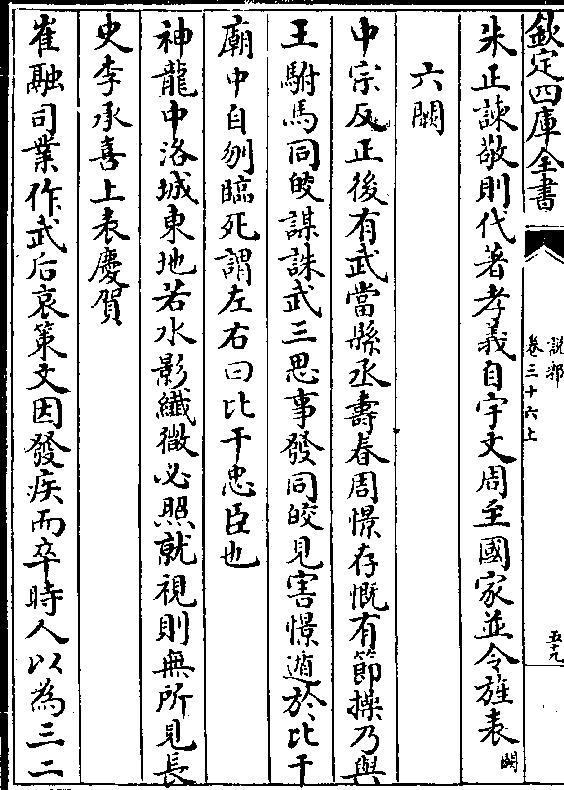 欽定四庫全書
說郛
卷三十六上
五十九
朱正諫敬則代著孝義自宇文周至國家並令旌表闕
六闕
中宗反正後有武當縣丞壽春周憬存慨有節操乃與
王駙馬同皎謀誅武三思事發同皎見害憬遁於比干
廟中自刎臨死謂左右曰比干忠臣也
神龍中洛城東地若水影纖微必照就視則無所見長
史李承喜上表慶賀
崔融司業作武后哀策文因發疾而卒時人以為三二